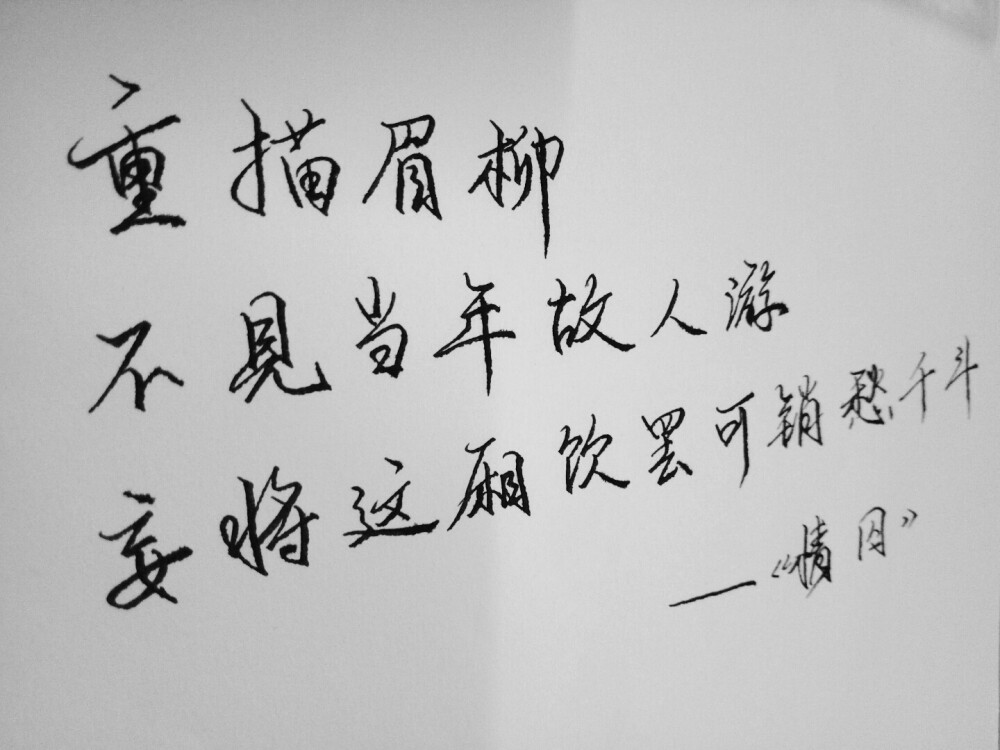 重描眉柳
不见当年故人游
妄将这厢饮罢可销愁千斗
——《情囚》